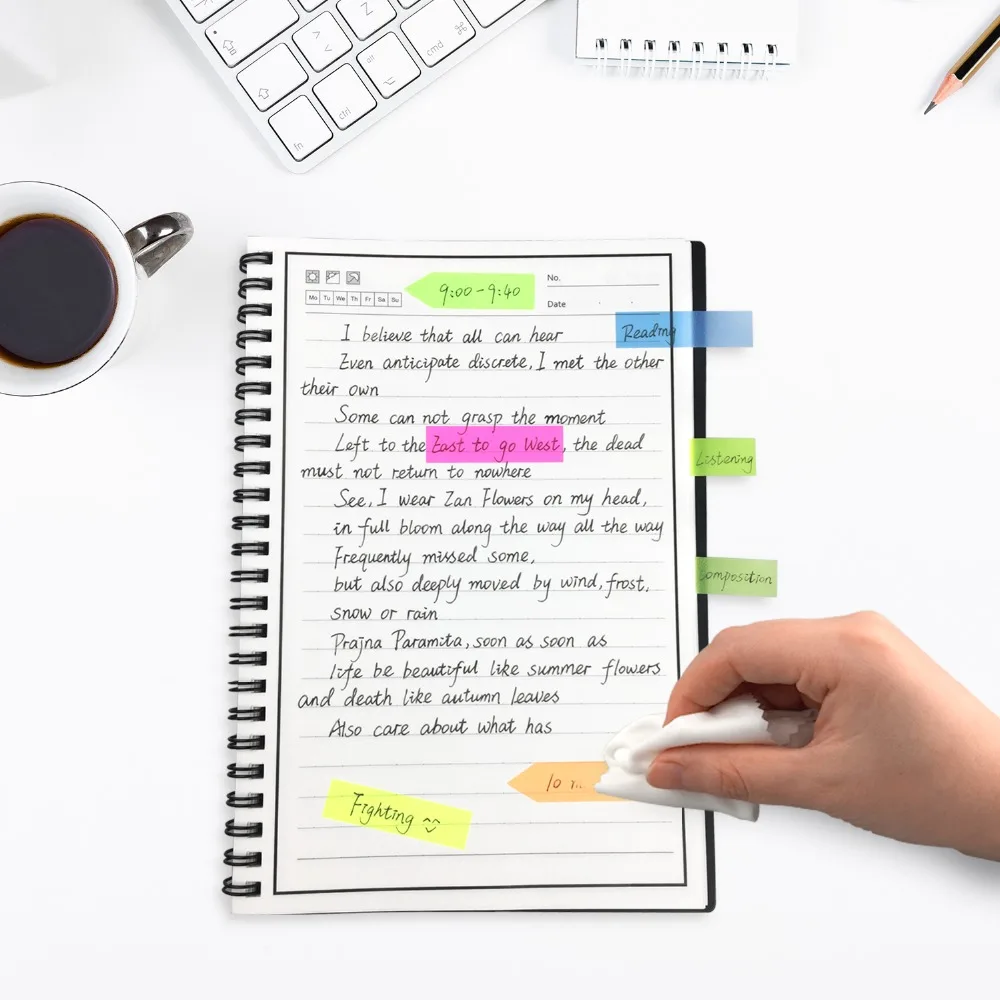 Z
alt
cmd
⌘
⌥
ctrl
fn
9:00-9:40
No.
Mo Tu We Th Fr Sa Su
Date
I believe that all can hear
Reading
Even anticipate discrete, I met the other
their own
Some can not grasp the moment
Left to the East to go West, the dead
Listening
must not return to nowhere
See, I wear Zan Flowers on my head,
in full bloom along the way all the way
Frequently missed some,
but also deeply moved by wind, frost,
Composition
snow or rain
Prajna Paramita, soon as soon as
life be beautiful like summer flowers
and death like autumn leaves
Also care about what has
10
Fighting